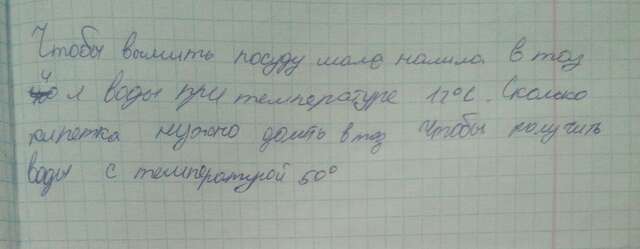 Чтобы вымыть посуду мама налила в таз
л воды при температуре 12°C. Сколько
кипятка нужно долить в таз Чтобы получить
воды с температурой 50°